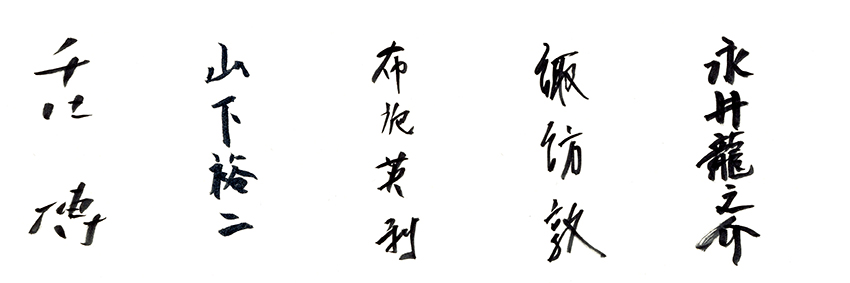 永井龍之介
諏訪敦
布施英利
山下裕二
千住博